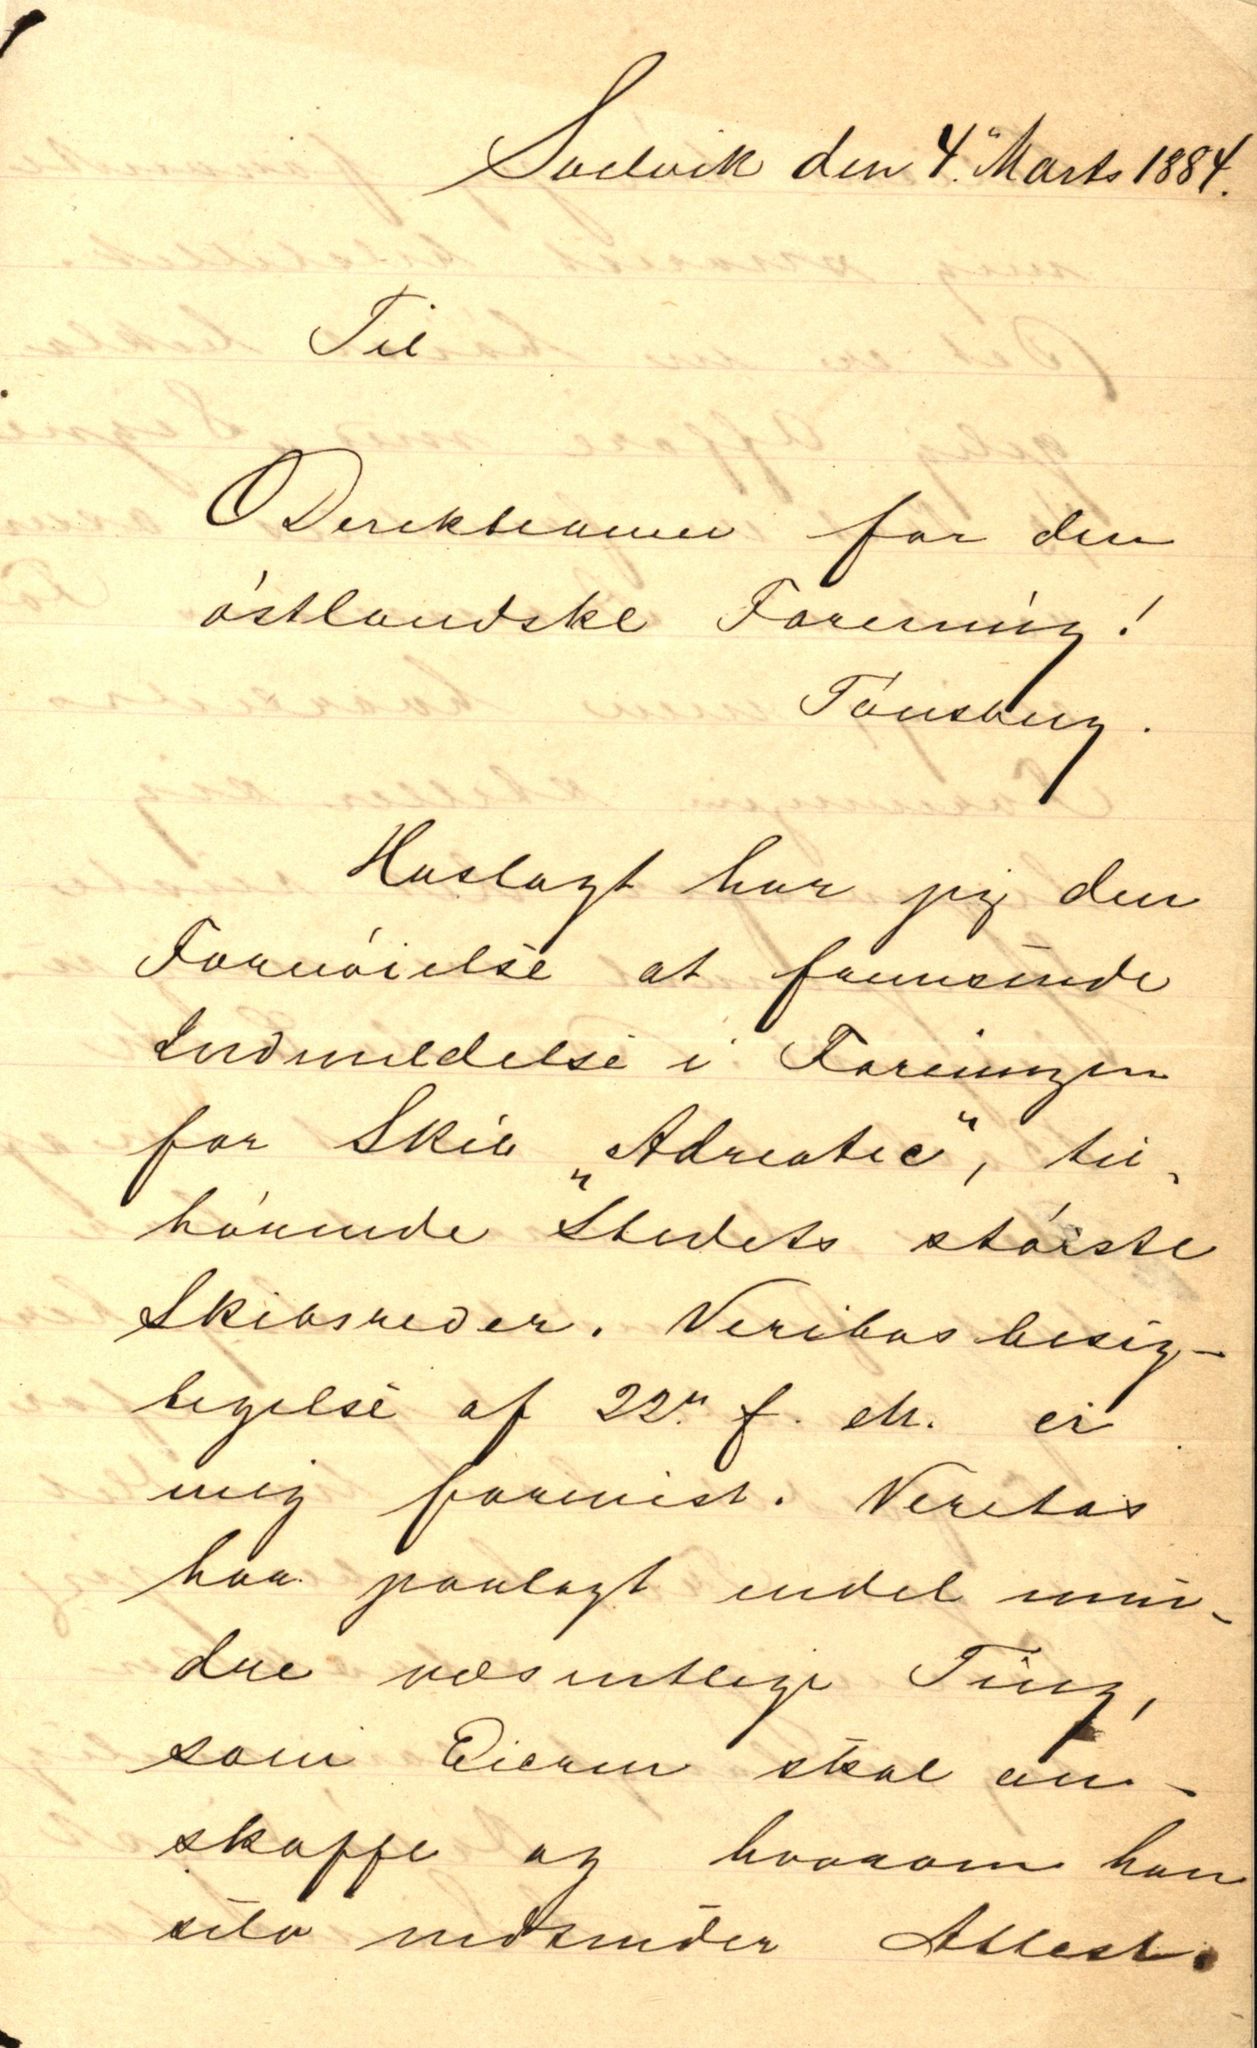 Svelvik den 4de Marts 1884.
Til
Direktionen for den
østlandske Forening!
Tønsberg.
Hoslagt har jeg den
Fornøielse at fremsende
Indmeldelse i Foreningen
for Skib „Adriatic“, til-
hørende Stedets største
Skibsreder. Veritas besig-
tigelse af 22de f. M. er
mig forevist. Veritas
har paalagt endel min-
dre væsentlige Ting,
som Eieren skal an-
skaffe og hvorom han
selv nedsender Attest.